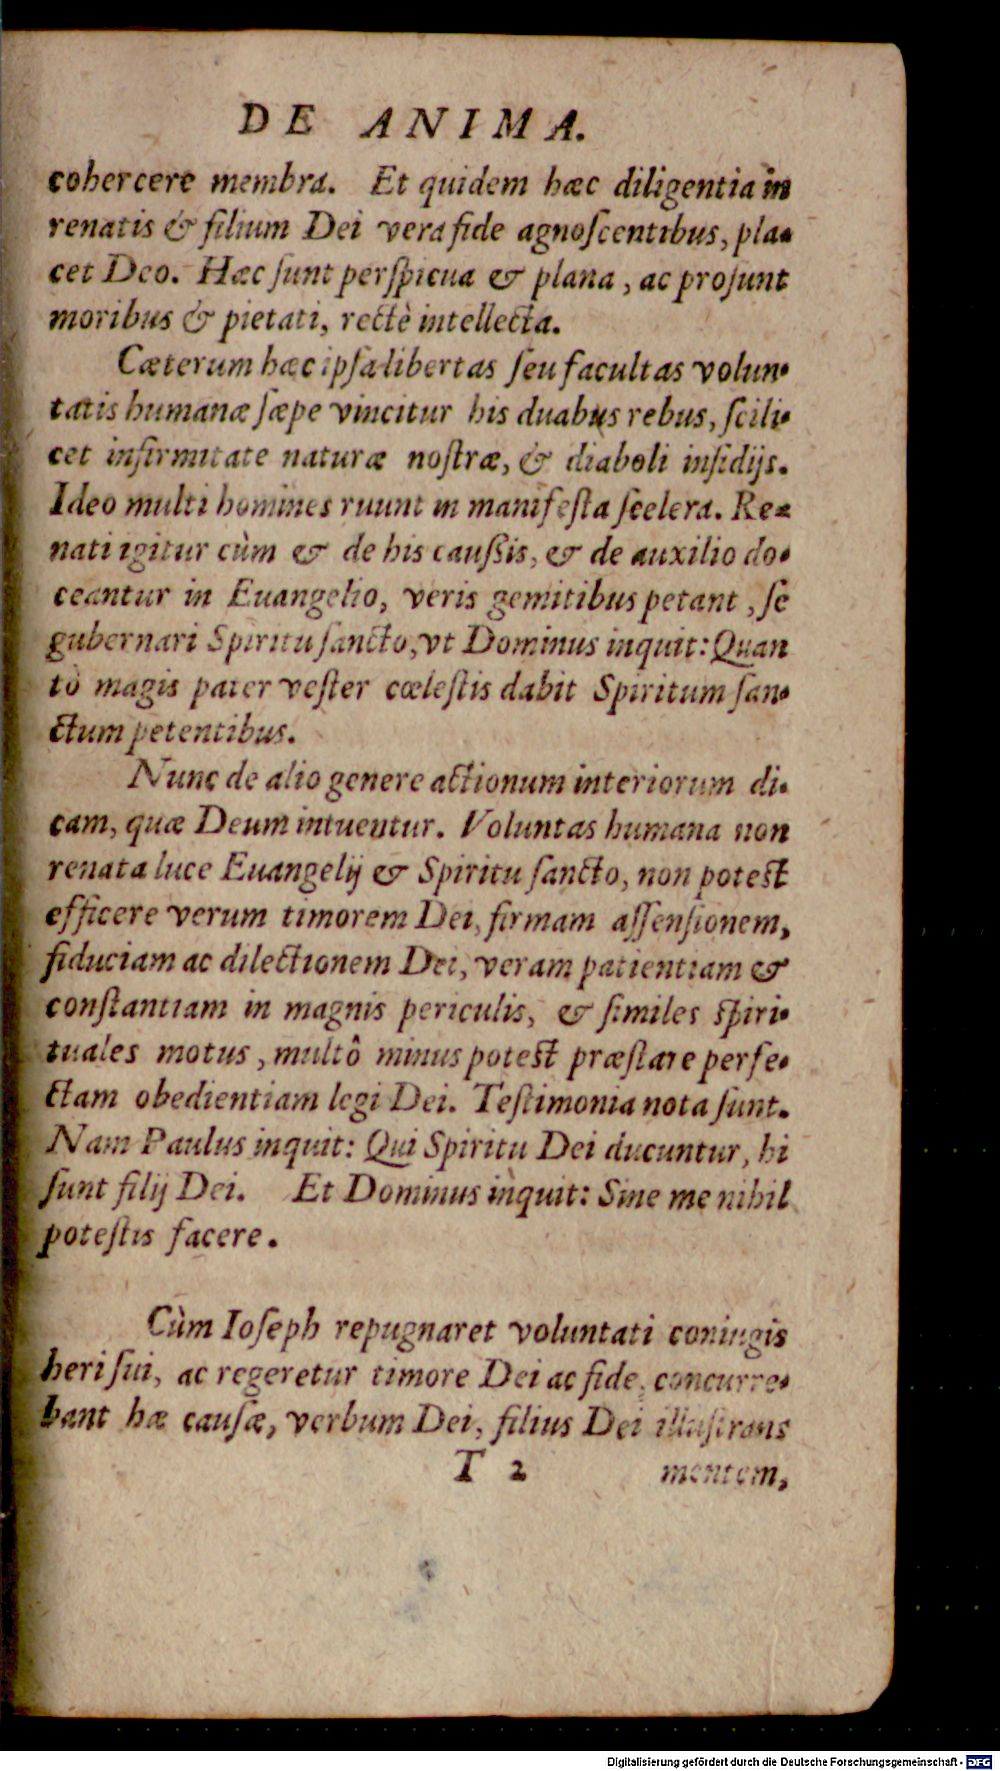 DE ANIMA.
cohercere membra. Et quidem hæc diligentia in
renatis & filium Dei vera fide agnoſcentibus, pla-
cet Deo. Hæc ſunt perſpicua & plana, ac proſunt
moribus & pietati, rectè intellecta.
Cæterum hæc ipſa libertas ſeu facultas volun-
tatis humanæ ſæpe vincitur his duabus rebus, ſcili-
cet infirmitate naturæ noſtræ, & diaboli inſidijs.
Ideo multi homines ruunt in manifeſta ſcelera. Re-
nati igitur cùm & de his cauſsis, & de auxilio do-
ceantur in Euangelio, veris gemitibus petant, ſe
gubernari Spiritu ſancto, vt Dominus inquit: Quan
tò magis pater veſter cœleſtis dabit Spiritum ſan-
ctum petentibus.
Nunc de alio genere actionum interiorum di-
cam, quæ Deum intuentur. Voluntas humana non
renata luce Euangelij & Spiritu ſancto, non poteſt
efficere verum timorem Dei, firmam aſſenſionem,
fiduciam ac dilectionem Dei, veram patientiam &
conſtantiam in magnis periculis, & ſimiles ſpiri-
tuales motus, multô minus poteſt præſtare perfe-
ctam obedientiam legi Dei. Teſtimonia nota ſunt.
Nam Paulus inquit: Qui Spiritu Dei ducuntur, hi
ſunt filij Dei. Et Dominus inquit: Sine me nihil
poteſtis facere.
Cùm Ioſeph repugnaret voluntati coniugis
heri ſui, ac regeretur timore Dei ac fide, concurre-
bant hæ cauſæ, verbum Dei, filius Dei illuſtrans
T 2 mentem,
Digitalisierung gefördert durch die Deutsche Forschungsgemeinschaft - DFG